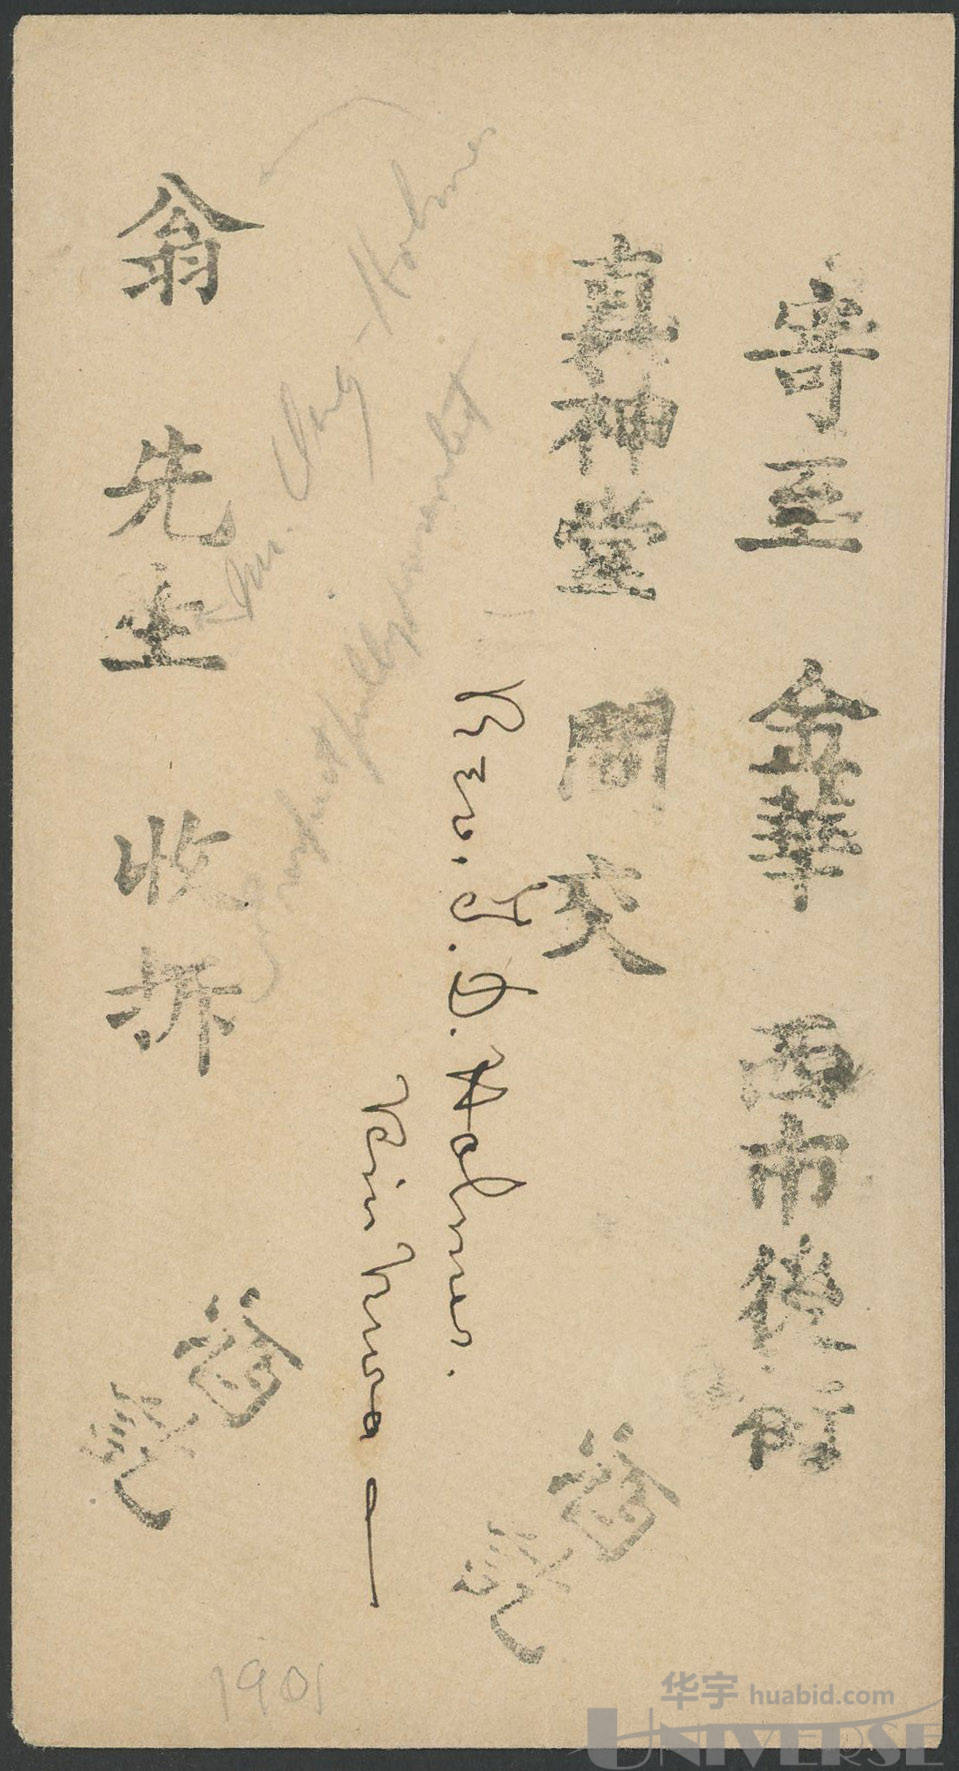 寄至 金華 西市後街
真神堂 間交
翁 先生 收拆
Rev. T. D. Holmes.
Kin hwa
Mr. Ong - Holmes
respectfully
谷
谷
1901
华宇 huabid.com
UNIVERSE